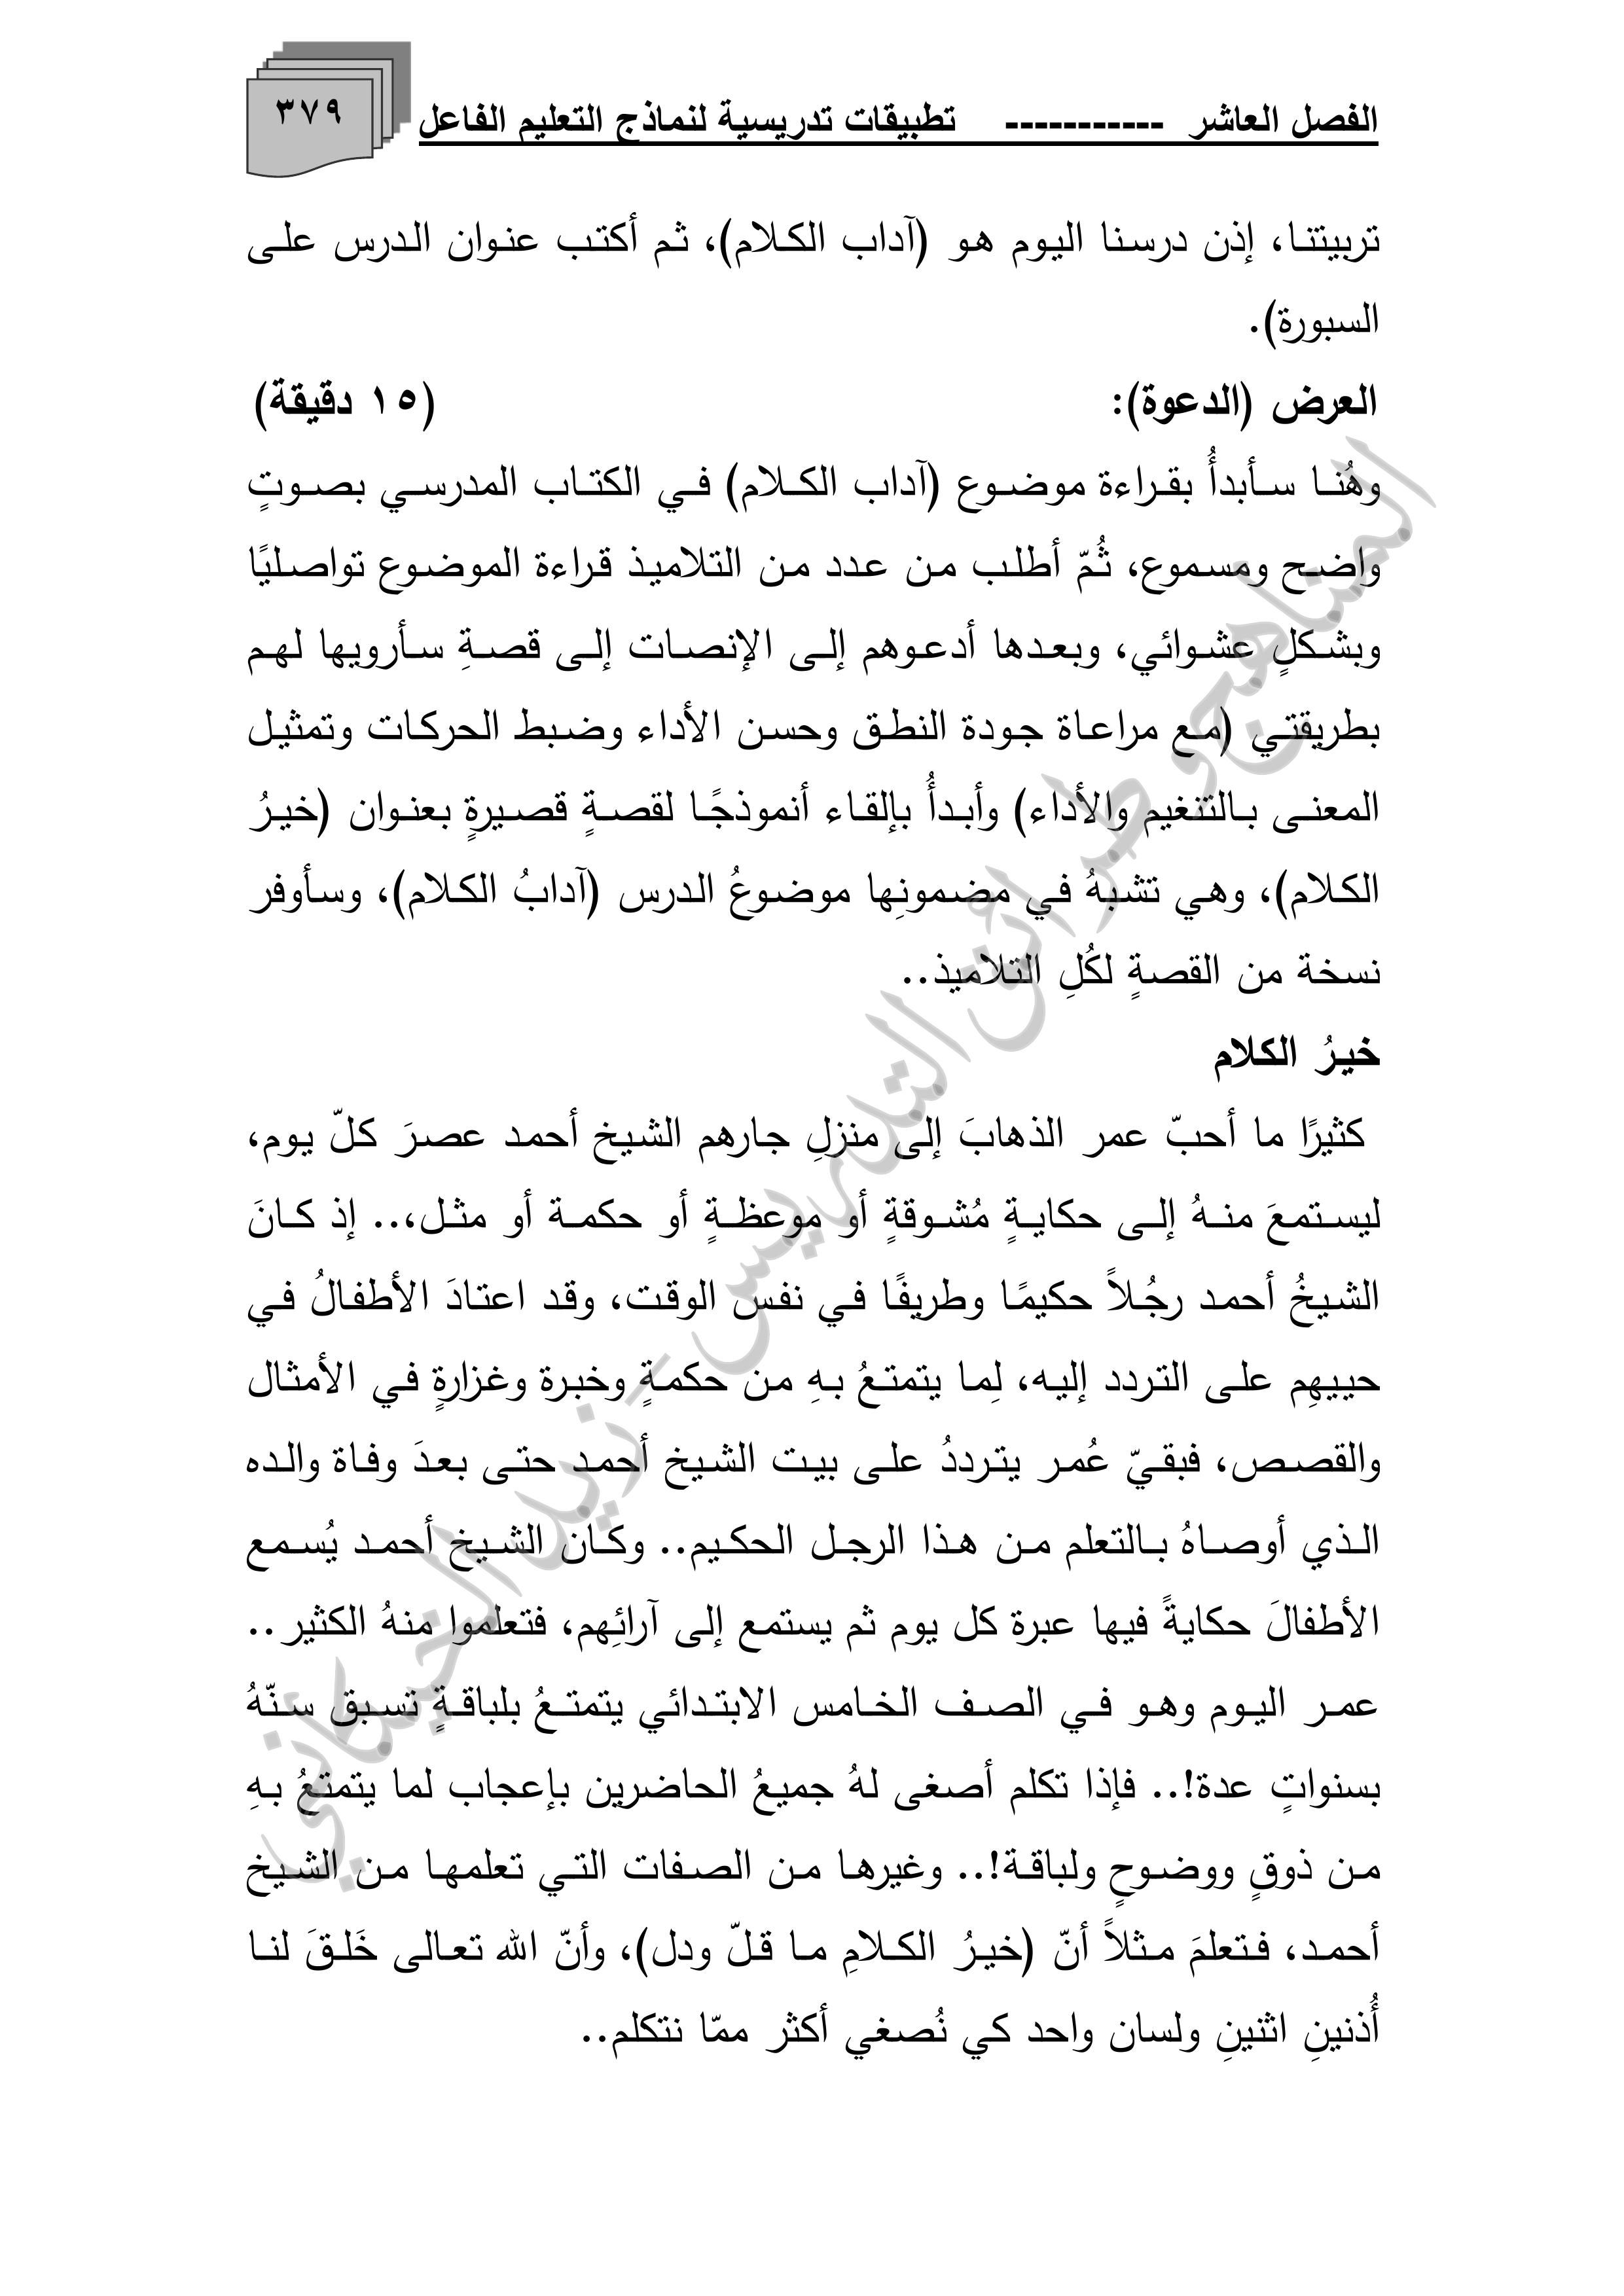 الفصل العاشر ----------- تطبيقات تدريسية لنماذج التعليم الفاعل
٣٧٩
تربيتنا، إذن درسنا اليوم هو (آداب الكلام)، ثم أكتب عنوان الدرس على
السبورة).
العرض (الدعوة): (١٥ دقيقة)
وهُنا سأبدأُ بقراءة موضوع (آداب الكلام) في الكتاب المدرسي بصوتٍ
واضح ومسموع، ثُمّ أطلب من عدد من التلاميذ قراءة الموضوع تواصليًا
وبشكلٍ عشوائي، وبعدها أدعوهم إلى الإنصات إلى قصةِ سأرويها لهم
بطريقتي (مع مراعاة جودة النطق وحسن الأداء وضبط الحركات وتمثيل
المعنى بالتنغيم والأداء) وأبدأُ بإلقاء أنموذجًا لقصةٍ قصيرةٍ بعنوان (خيرُ
الكلام)، وهي تشبهُ في مضمونِها موضوعُ الدرس (آدابُ الكلام)، وسأوفر
نسخة من القصةٍ لكُلِ التلاميذ..
خيرُ الكلام
كثيرًا ما أحبّ عمر الذهابَ إلى منزلِ جارهم الشيخ أحمد عصرَ كلّ يوم،
ليستمعَ منهُ إلى حكايةٍ مُشوقةٍ أو موعظةٍ أو حكمة أو مثل،.. إذ كانَ
الشيخُ أحمد رجُلاً حكيمًا وطريفًا في نفس الوقت، وقد اعتادَ الأطفالُ في
حييهِم على التردد إليه، لِما يتمتعُ بهِ من حكمةٍ وخبرة وغزارةٍ في الأمثال
والقصص، فبقيّ عُمر يترددُ على بيت الشيخ أحمد حتى بعدَ وفاة والده
الذي أوصاهُ بالتعلم من هذا الرجل الحكيم.. وكان الشيخ أحمد يُسمع
الأطفالَ حكايةً فيها عبرة كل يوم ثم يستمع إلى آرائِهم، فتعلموا منهُ الكثير..
عمر اليوم وهو في الصف الخامس الابتدائي يتمتعُ بلباقةٍ تسبق سنّهُ
بسنواتٍ عدة!.. فإذا تكلم أصغى لهُ جميعُ الحاضرين بإعجاب لما يتمتعُ بهِ
من ذوقٍ ووضوحٍ ولباقة!.. وغيرها من الصفات التي تعلمها من الشيخ
أحمد، فتعلمَ مثلاً أنّ (خيرُ الكلامِ ما قلّ ودل)، وأنّ الله تعالى خَلقَ لنا
أُذنينِ اثنينِ ولسان واحد كي نُصغي أكثر ممّا نتكلم..
المناهج وطرائق التدريس - نبيل الخيكاني